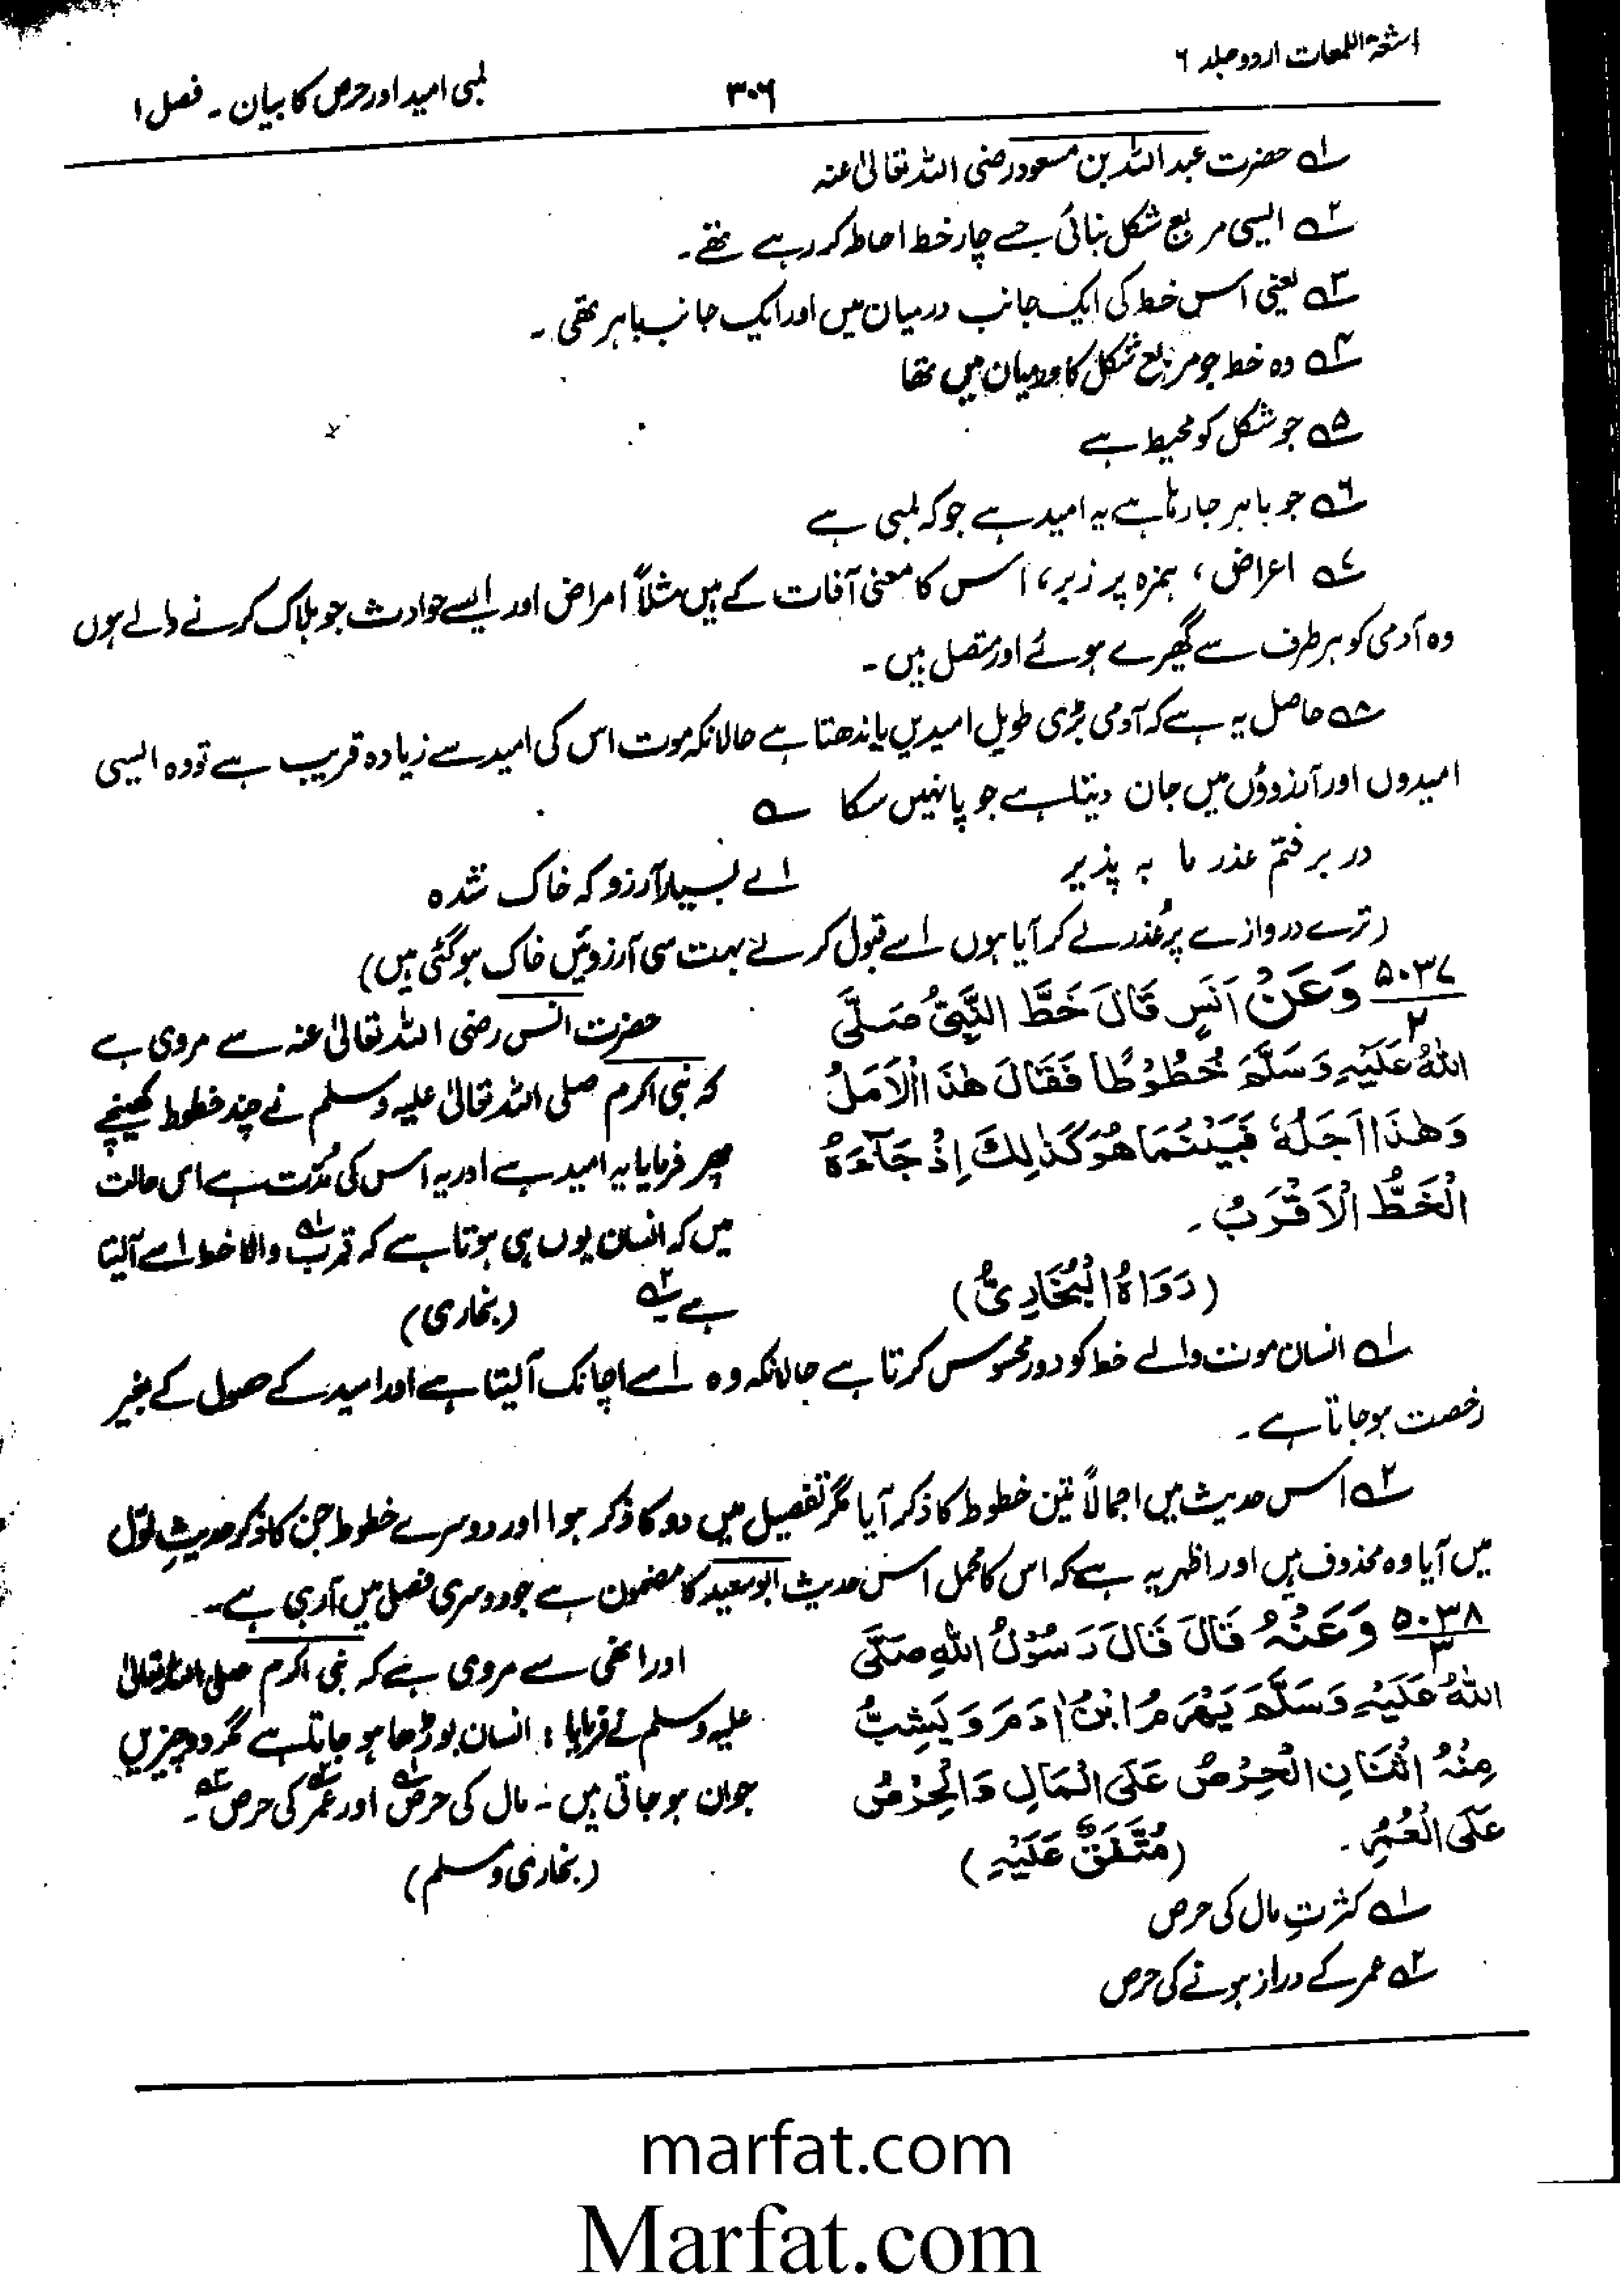 اشعۃ اللمعات اردو جلد ۶
۳۰۶
لمبی امید اور حرص کا بیان ۔ فصل ۱
۱؎ حضرت عبداللہ بن مسعود رضی اللہ تعالیٰ عنہ
۲؎ ایسی مربع شکل بنائی جسے چار خط احاطہ کر رہے تھے۔
۳؎ یعنی اس خط کی ایک جانب درمیان میں اور ایک جانب باہر تھی۔
۴؎ وہ خط جو مربع شکل کا درمیان میں تھا
۵؎ جو شکل کو محیط ہے
۶؎ جو باہر جا رہا ہے یہ امید ہے جو کہ لمبی ہے
۷؎ اعراض، ہمزہ پر زبر، اس کا معنی آفات کے ہیں مثلاً امراض اور ایسے حوادث جو ہلاک کرنے والے ہوں
وہ آدمی کو ہر طرف سے گھیرے ہوئے اور متصل ہیں۔
۸؎ حاصل یہ ہے کہ آدمی بڑی طویل امیدیں باندھتا ہے حالانکہ موت اس کی امید سے زیادہ قریب ہے تو وہ ایسی
امیدوں اور آرزوؤں میں جان دیتا ہے جو پا نہیں سکا ؎
در بر فتم عذر ما بہ پذیر اے بسیار آرزو کہ خاک شدہ
(ترے دروازے پر عُذر لے کر آیا ہوں اسے قبول کر لے بہت سی آرزوئیں خاک ہو گئی ہیں)
۵۰۳۷
۲
وَعَنْ اَنَسٍ قَالَ خَطَّ النَّبِیُّ صَلَّی
اللہُ عَلَیْہِ وَسَلَّمَ خُطُوْطًا فَقَالَ ھٰذَا الْاَمَلُ
وَھٰذَا اَجَلُہٗ فَبَیْنَمَا ھُوَ کَذٰلِكَ اِذْ جَآءَہُ
الْخَطُّ الْاَقْرَبُ۔
(رَوَاہُ الْبُخَارِیُّ)
حضرت انس رضی اللہ تعالیٰ عنہ سے مروی ہے
کہ نبی اکرم صلی اللہ تعالیٰ علیہ وسلم نے چند خطوط کھینچے
پھر فرمایا یہ امید ہے اور یہ اس کی مُدّت ہے اس حالت
میں کہ انسان یوں ہی ہوتا ہے کہ قرب۱؎ والا خط اسے آلیتا
ہے۲؎۔ (بخاری)
۱؎ انسان موت والے خط کو دور محسوس کرتا ہے حالانکہ وہ اسے اچانک آلیتا ہے اور امید کے حصول کے بغیر
رخصت ہو جاتا ہے۔
۲؎ اس حدیث میں اجمالاً تین خطوط کا ذکر آیا مگر تفصیل میں دو کا ذکر ہوا اور دوسرے خطوط جن کا ذکر حدیثِ اوّل
میں آیا وہ محذوف ہیں اور اظہر یہ ہے کہ اس کا محمل اس حدیث ابو سعید کا مضمون ہے جو دوسری فصل میں آ رہی ہے۔
۵۰۳۸
۳
وَعَنْہُ قَالَ قَالَ رَسُوْلُ اللہِ صَلَّی
اللہُ عَلَیْہِ وَسَلَّمَ یَھْرَمُ ابْنُ اٰدَمَ وَیَشِبُّ
مِنْہُ اثْنَانِ الْحِرْصُ عَلَی الْمَالِ وَالْحِرْصُ
عَلَی الْعُمُرِ۔
(مُتَّفَقٌ عَلَیْہِ)
اور انھی سے مروی ہے کہ نبی اکرم صلی اللہ تعالیٰ
علیہ وسلم نے فرمایا: انسان بوڑھا ہو جاتا ہے مگر دو چیزیں
جوان ہو جاتی ہیں۔ مال کی حرص۱؎ اور عمر۲؎ کی حرص۳؎۔
(بخاری و مسلم)
۱؎ کثرتِ مال کی حرص
۲؎ عمر کے دراز ہونے کی حرص
marfat.com
Marfat.com